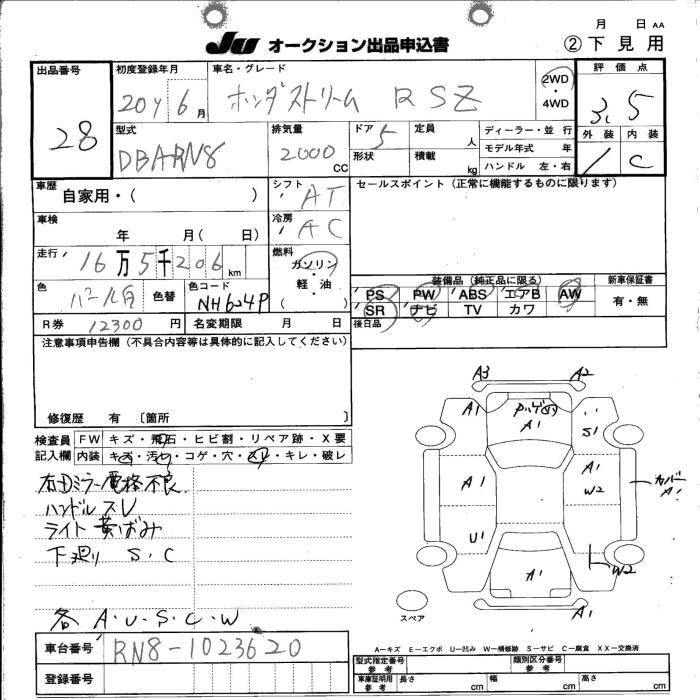 月 日 AA
JU オークション出品申込書 ②下見用
出品番号 28
初度登録年月 20y 6月
車名・グレード ホンダストリーム RSZ
2WD
・
4WD
評価点 3.5
外装 内装
1 C
型式 DBARN8
排気量 2000 CC
ドア 5
形状
定員 人
積載 kg
ディーラー・並 行
モデル年式 年
ハンドル 左・右
車歴 自家用・( )
シフト AT
セールスポイント(正常に機能するものに限ります)
車検 年 月( 日)
冷房 AC
走行 16万5千206 km
燃料 ガソリン・軽・油 ( )
色 パール白 色替 色コード NH624P
装備品(純正品に限る) 新車保証書
PS PW ABS エアB AW 有・無
SR ナビ TV カワ
R券 12300 円 名変期限 月 日
後日品
注意事項申告欄(不具合内容等は具体的に記入してください)
修復歴 有 〔箇所 〕
検査員 FW キズ・飛石・ヒビ割・リペア跡・X要
記入欄 内装 キズ・汚レ・コゲ・穴・スレ・キレ・破レ
右Dミラー電格不良
ハンドルスレ
ライト黄ばみ
下廻り S・C
各 A・U・S・C・W
A3 A2
A1 A1
S1
A1 A1
W2
カバー
A1
U1
W2
A1
A1
スペア
車台番号 RN8-1023620
登録番号
A―キズ E―エクボ U―凹み W―補修跡 S―サビ C―腐食 XX―交換済
型式指定番号 参考 類別区分番号 参考
車庫証明用 参考 長さ cm 幅 cm 高さ cm